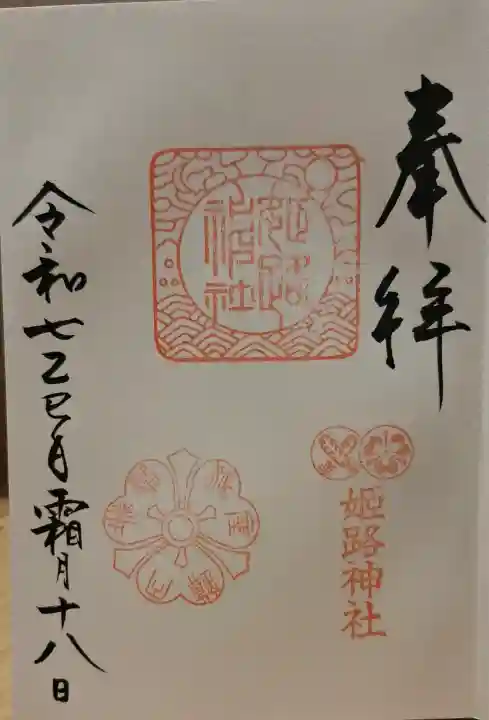 奉拝
姫路神社
姫路神社
令和七乙巳月霜月十八日